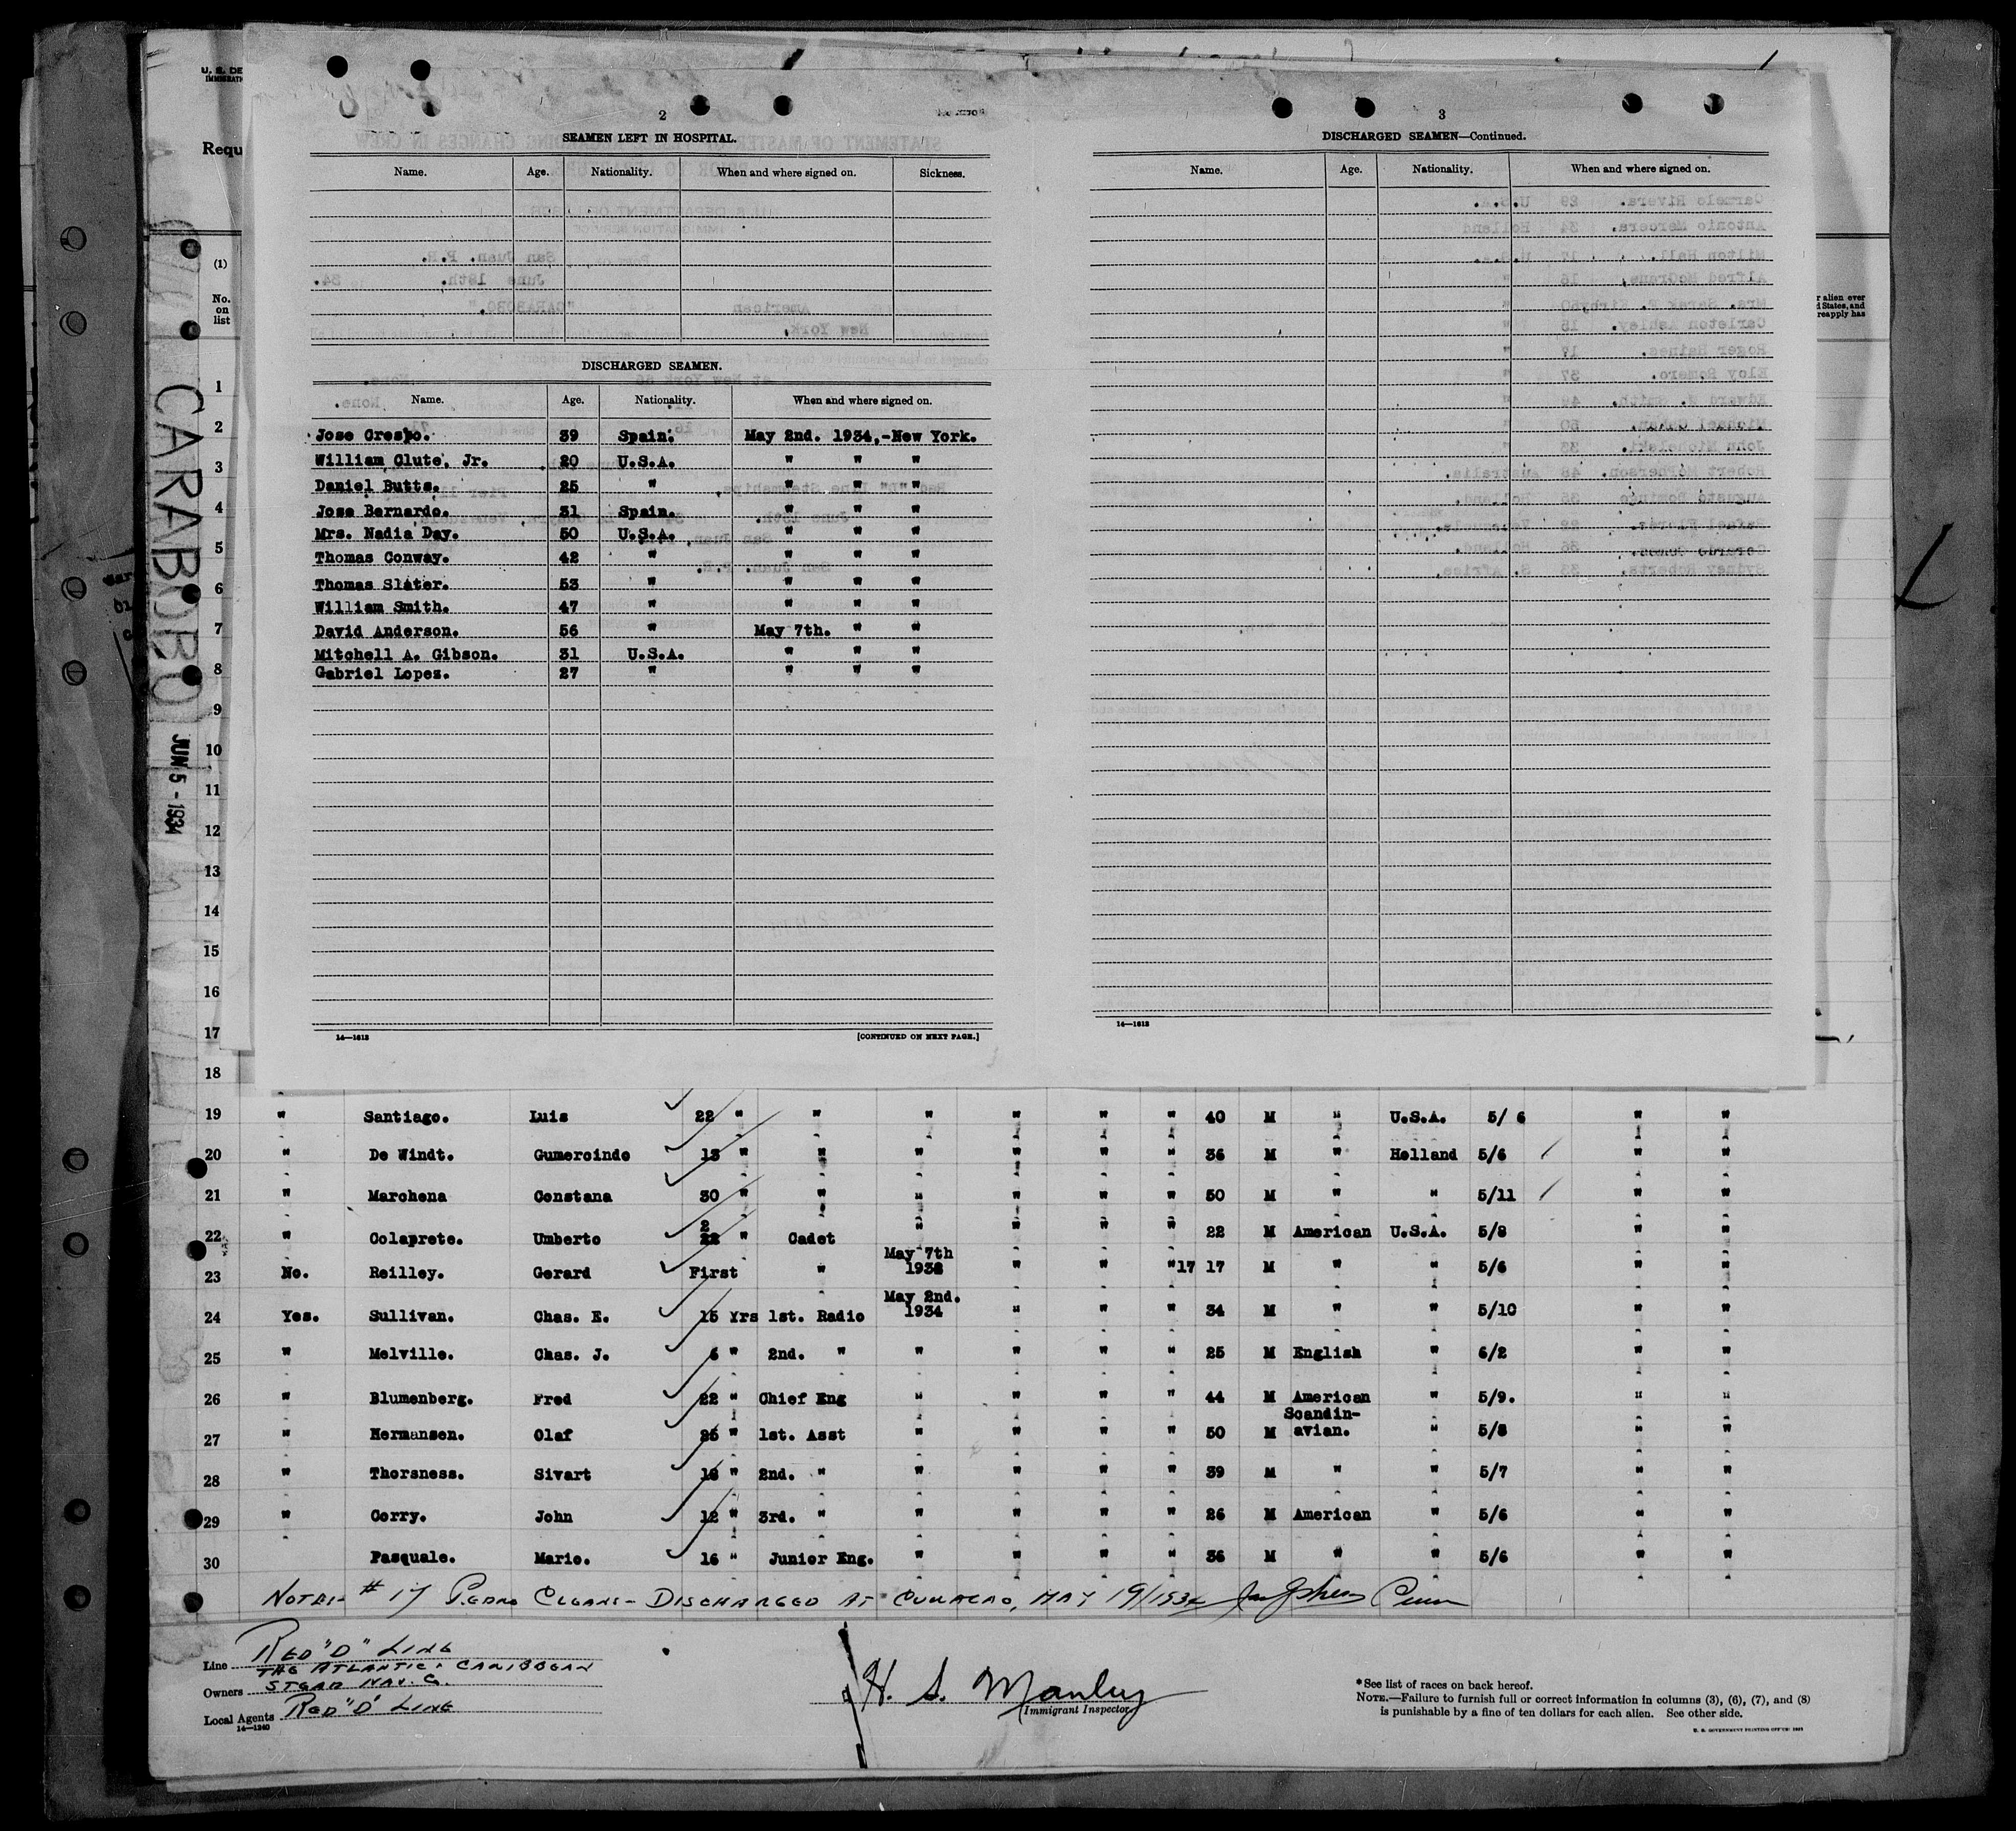 U. S. DE
IMMIGRATI
Requ
(1)
No.
on
list
CARABOBO JUN 5 - 1934
2
SEAMEN LEFT IN HOSPITAL.
Name. Age. Nationality. When and where signed on. Sickness.
DISCHARGED SEAMEN.
Name. Age. Nationality. When and where signed on.
Jose Crespo. 39 Spain. May 2nd. 1934,-New York.
William Clute, Jr. 20 U.S.A. " " "
Daniel Butts. 25 " " " "
Jose Bernardo. 31 Spain. " " "
Mrs. Nadia Day. 50 U.S.A. " " "
Thomas Conway. 42 " " " "
Thomas Slater. 53 " " " "
William Smith. 47 " " " "
David Anderson. 56 " May 7th. " "
Mitchell A. Gibson. 31 U.S.A. " " "
Gabriel Lopez. 27 " " " "
14—1613 [CONTINUED ON NEXT PAGE.]
3
DISCHARGED SEAMEN—Continued.
Name. Age. Nationality. When and where signed on.
14—1613
r alien ever
d States, and
reapply has
1
2
3
4
5
6
7
8
9
10
11
12
13
14
15
16
17
18
19 " Santiago. Luis 22 " " " " " " 40 M " U.S.A. 5/ 6 " "
20 " De Windt. Gumercindo 13 " " " " " " 36 M " Holland 5/6 " "
21 " Marchena Constana 30 " " " " " " 50 M " " 5/11 " "
22 " Colaprete. Umberto 2 " Cadet " " " " 22 M American U.S.A. 5/8 " "
23 No. Reilley. Gerard First " May 7th 1938 " " " 17 17 M " " 5/6 " "
24 Yes. Sullivan. Chas. E. 15 Yrs 1st. Radio May 2nd. 1934 " " " 34 M " " 5/10 " "
25 " Melville. Chas. J. 6 " 2nd. " " " " " 25 M English " 6/2 " "
26 " Blumenberg. Fred 22 " Chief Eng " " " " 44 M American " 5/9. " "
27 " Hermansen. Olaf 25 " 1st. Asst " " " " 50 M Scandin-avian. " 5/8 " "
28 " Thorsness. Sivart 18 " 2nd. " " " " " 39 M " " 5/7 " "
29 " Corry. John 12 " 3rd. " " " " " 26 M American " 5/6 " "
30 Pasquale. Marie. 16 " Junior Eng. " " " " 36 M " " 5/6 " "
NOTE:- # 17 PEDRO CLEANE - DISCHARGED AT CURACAO, MAY 19/1934
Line RED "D" LINE
THE ATLANTIC & CARIBBEAN
Owners STEAM NAV. Co.
Local Agents RED "D" LINE
14—1240
H. S. Manley
Immigrant Inspector.
* See list of races on back hereof.
NOTE.—Failure to furnish full or correct information in columns (3), (6), (7), and (8)
is punishable by a fine of ten dollars for each alien. See other side.
U. S. GOVERNMENT PRINTING OFFICE: 1931